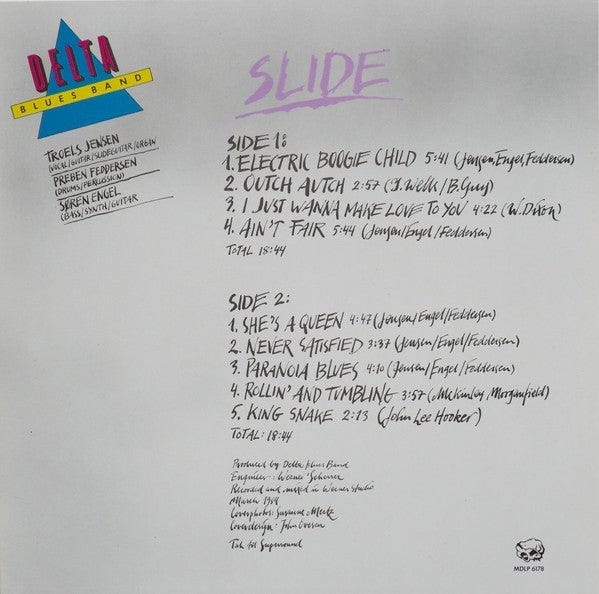 DELTA
BLUES BAND
TROELS JENSEN
(VOCAL/GUITAR/SLIDEGUITAR/ORGAN
PREBEN FEDDERSEN
(DRUMS/PERCUSSION)
SØREN ENGEL
(BASS/SYNTH/GUITAR
SLIDE
SIDE 1:
1. ELECTRIC BOOGIE CHILD 5:41 (Jensen, Engel, Feddersen)
2. OUTCH AUTCH 2:57 (J. Welk/B. Guy)
3. I JUST WANNA MAKE LOVE TO YOU 4:22 (W. Dixon)
4. AIN'T FAIR 5:44 (Jensen/Engel/Feddersen)
TOTAL 18:44
SIDE 2:
1. SHE'S A QUEEN 4:47 (Jensen/Engel/Feddersen)
2. NEVER SATISFIED 3:37 (Jensen/Engel/Feddersen)
3. PARANOIA BLUES 4:10 (Jensen/Engel/Feddersen)
4. ROLLIN' AND TUMBLING 3:57 (McKinley/Morganfield)
5. KING SNAKE 2:13 (John Lee Hooker)
TOTAL: 18:44
Produced by Delta Blues Band
Engineer: Werner Scherrer
Recorded and mixed in Werner Studio
March
Coverphotos: Susanne Mertz
Coverdesign: John Ovesen
Tak til
MDLP 6178